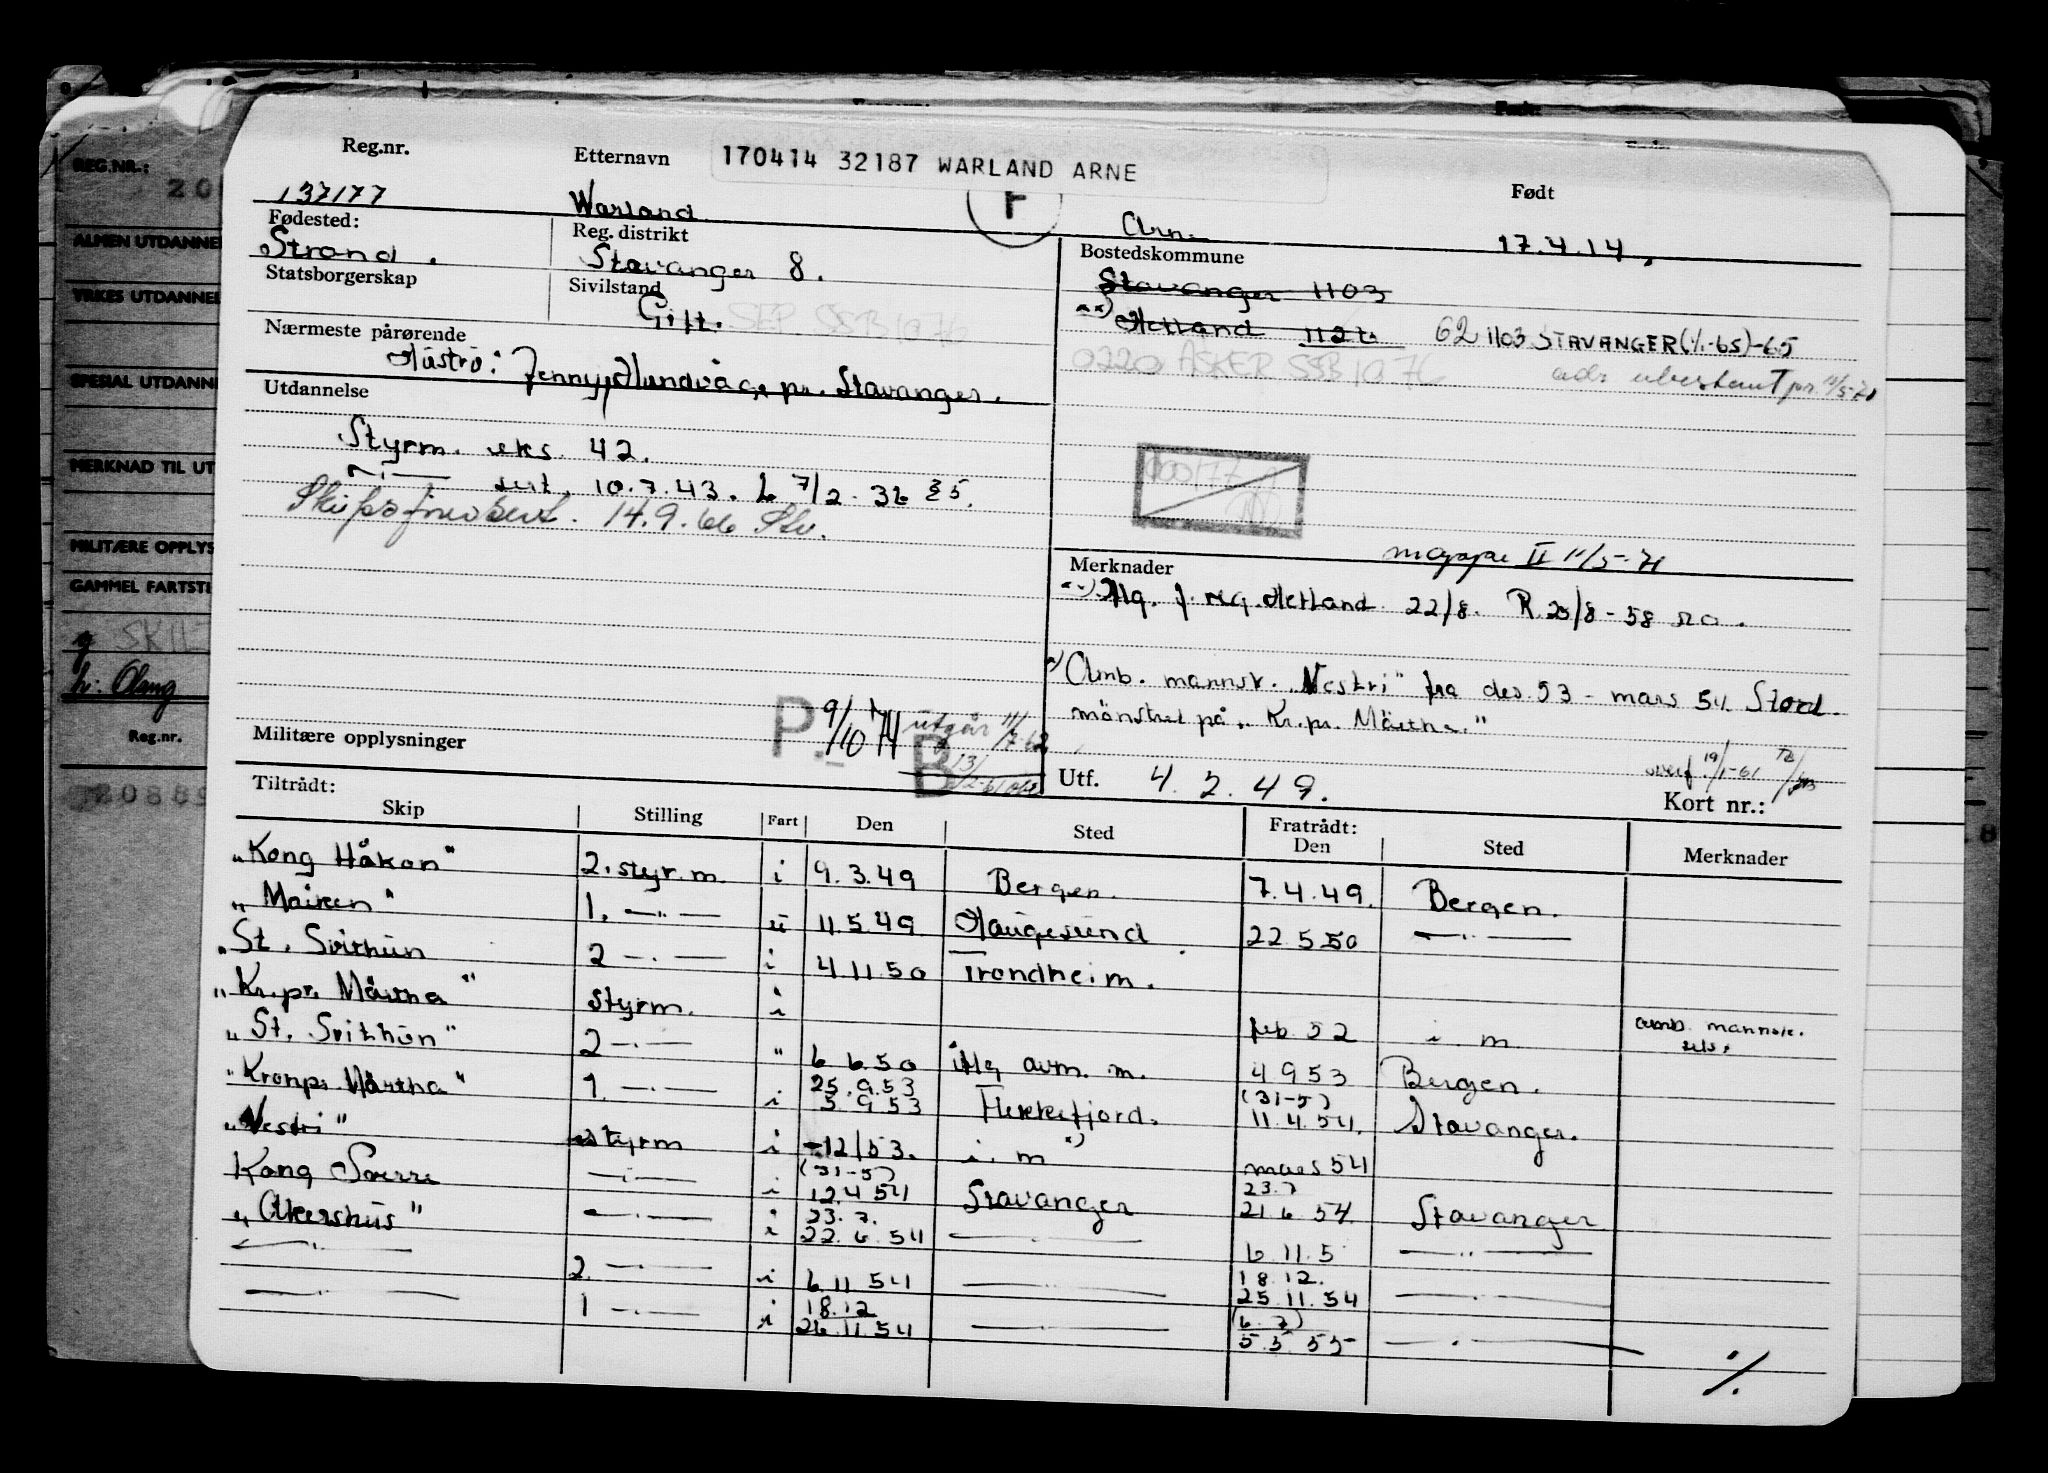 Reg.nr. Etternavn 170414 32187 WARLAND ARNE Født
137177 Warland F Arne 17.4.14.
Fødested: Reg. distrikt Bostedskommune
Strand. Stavanger 8. Stavanger 1103
Statsborgerskap Sivilstand
Gift. SEP. SSB 1076
xx) Hetland 1126 62 1103 STAVANGER (1/1-65)-65
0220 ASKER SSB 1076
adr ubestemt pr. 11/5-71
Nærmeste pårørende
Hustru: Jenny, Hundvåg pr. Stavanger.
Utdannelse
Styrm. eks. 42.
sert. 10.7.43. L 7/2.36 § 5.
14.9.66 Stv.
mappe II 11/5-71
Merknader
xx) Mg. f. reg. Hetland 22/8. R. 23/8-58
x) Omb. mannsk. "Vestri" fra des 53 - mars 54. Stod
mönstret på "Kr.pr. Märtha."
P. 9/10 74 utgår 11/7 62
B
Militære opplysninger
Utf. 4.2.49. overf. 19/1-61
Kort nr.:
Tiltrådt: Fratrådt:
Skip Stilling Fart Den Sted Den Sted Merknader
"Kong Håkon" 2. styr.m. i 9.3.49 Bergen. 7.4.49. Bergen.
"Maiken" 1. —"— u 11.5.49 Haugesund 22.5.50 —"—
"St. Svithun 2 —"— i 4.11.50 Trondheim.
"Kr.pr. Märtha" Styrm. i feb. 52 i. m omb. mannsk. sels.
"St. Svithun" 2 —"— " 6.6.50 iflg avm. m. 4 9 53 Bergen.
"Kronpr. Märtha" 1. —"— i 25.9.53 5.9.53 Flekkefjord. (31-5) 11.4.54. Stavanger.
"Vestri" styrm i -12/53. i. m x) mars 54
Kong Sverre —"— i (31-5) 12.4 54 Stavanger 23.7 21.6.54. Stavanger
"Akershus" —"— i 23.7. 22.6.54 —"— 6.11.5 —"—
—"— 2. —"— i 6.11 54 —"— 18.12. 25.11.54 —"—
—"— 1 —"— i 18.12 26.11.54 —"— (6.7) 5.5.55 —"—
%
REG.NR.:
ALMEN UTDANNE
YRKES UTDANNEL
SPESIAL UTDANN
MERKNAD TIL UT
MILITÆRE OPPLYS
GAMMEL FARTSTI
Reg.nr.